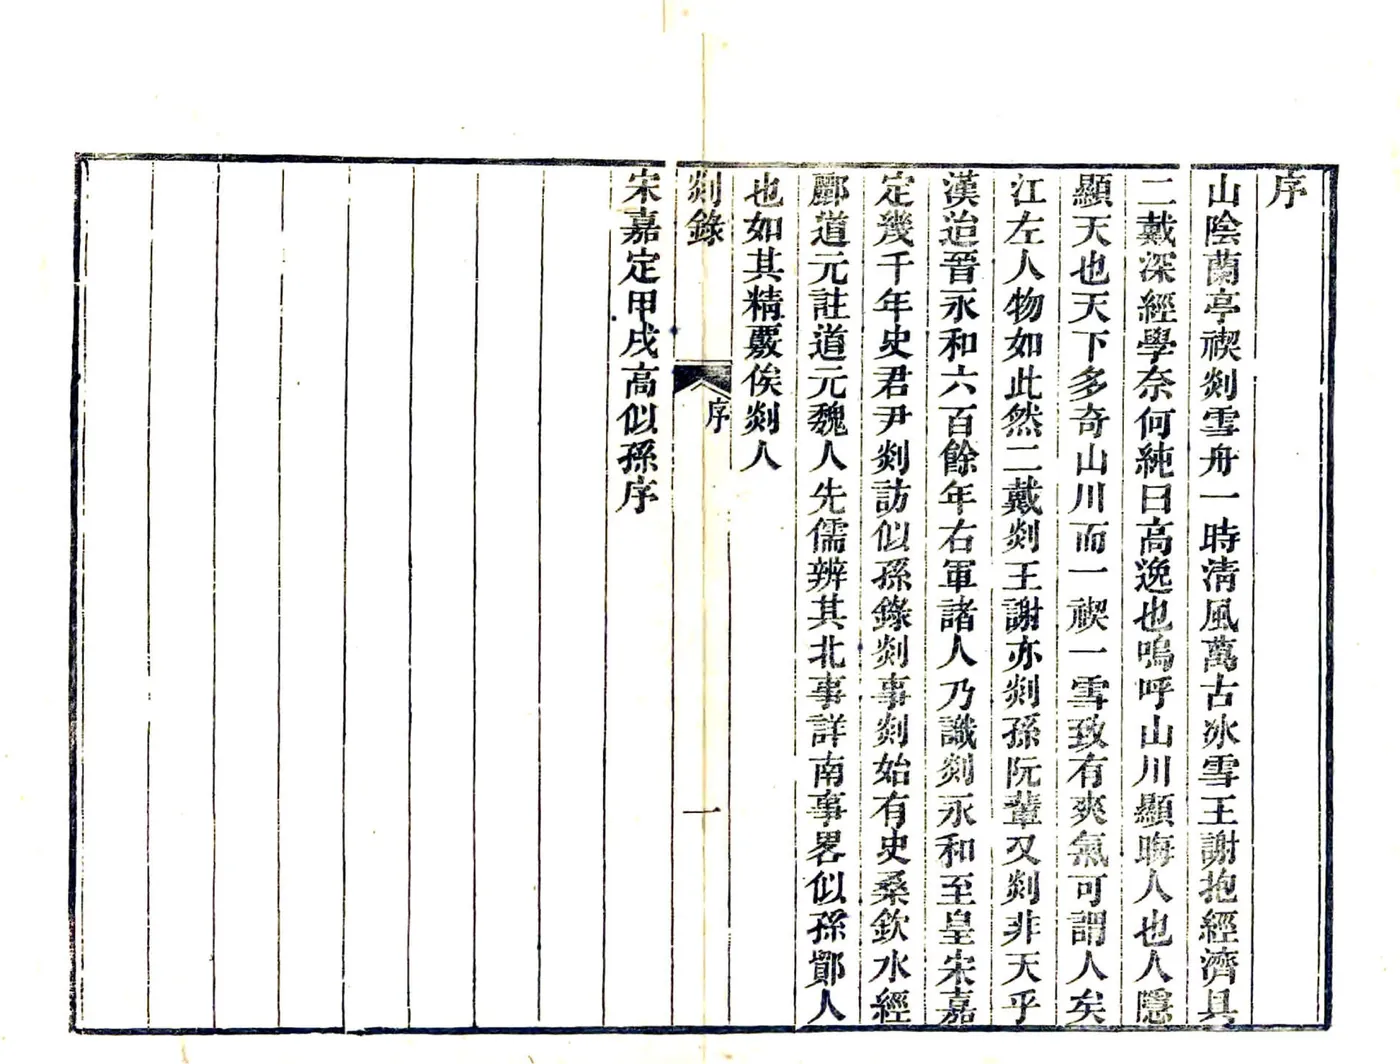 序
山陰蘭亭禊剡雪舟一時清風萬古冰雪王謝抱經濟具
二戴深經學奈何純曰高逸也嗚呼山川顯晦人也人隱
顯天也天下多奇山川而一禊一雪致有爽氣可謂人矣
江左人物如此然二戴剡王謝亦剡孫阮輩又剡非天乎
漢迨晉永和六百餘年右軍諸人乃識剡永和至皇宋嘉
定幾千年史君尹剡訪似孫錄剡事剡始有史桑欽水經
酈道元註道元魏人先儒辨其北事詳南事畧似孫鄞人
也如其精覈俟剡人
剡錄
序
一
宋嘉定甲戌高似孫序